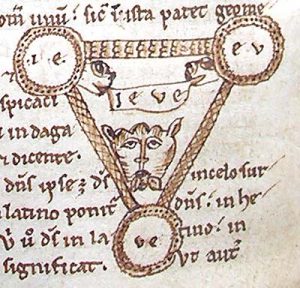 unū! sic ī ista patet geome
ie
ev
ieve
spicaci
in daga
dicere.
dn̄s ipse z ds̄ incelo sur
latino ponit dn̄s: in he
ds̄ in la ve tino: in
significat. ut aut̄